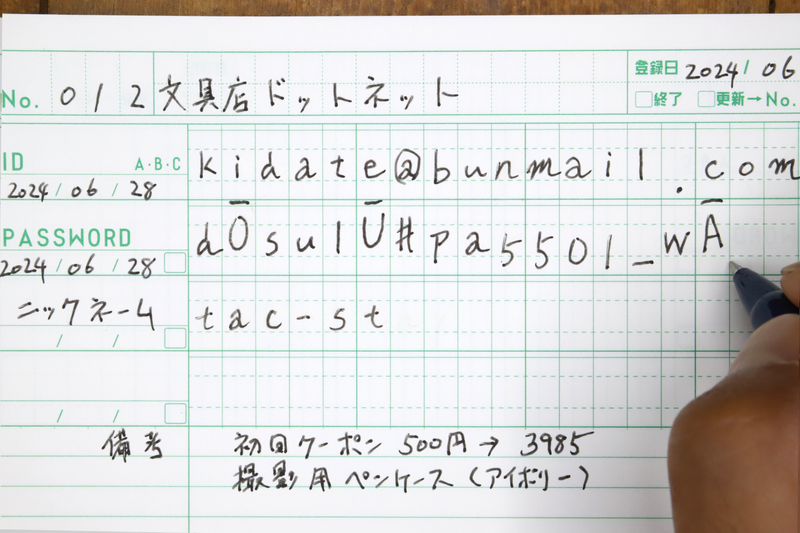 No. 012 文具店ドットネット 登録日 2024/06
終了 更新→No.
ID A・B・C kidate@bunmail.com
2024/06/28
PASSWORD dOsulU#pa5501_wA
2024/06/28
ニックネーム tac-st
/ /
/ /
備考 初回クーポン 500円→3985
撮影用ペンケース(アイボリー)